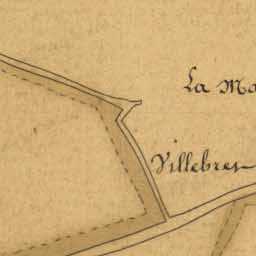 La Ma
Villebres